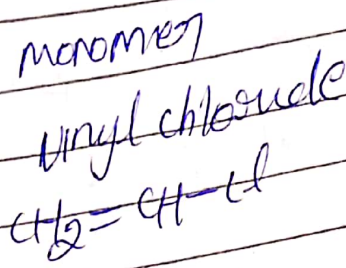 Monomer
vinyl chloride
CH2=CH-Cl